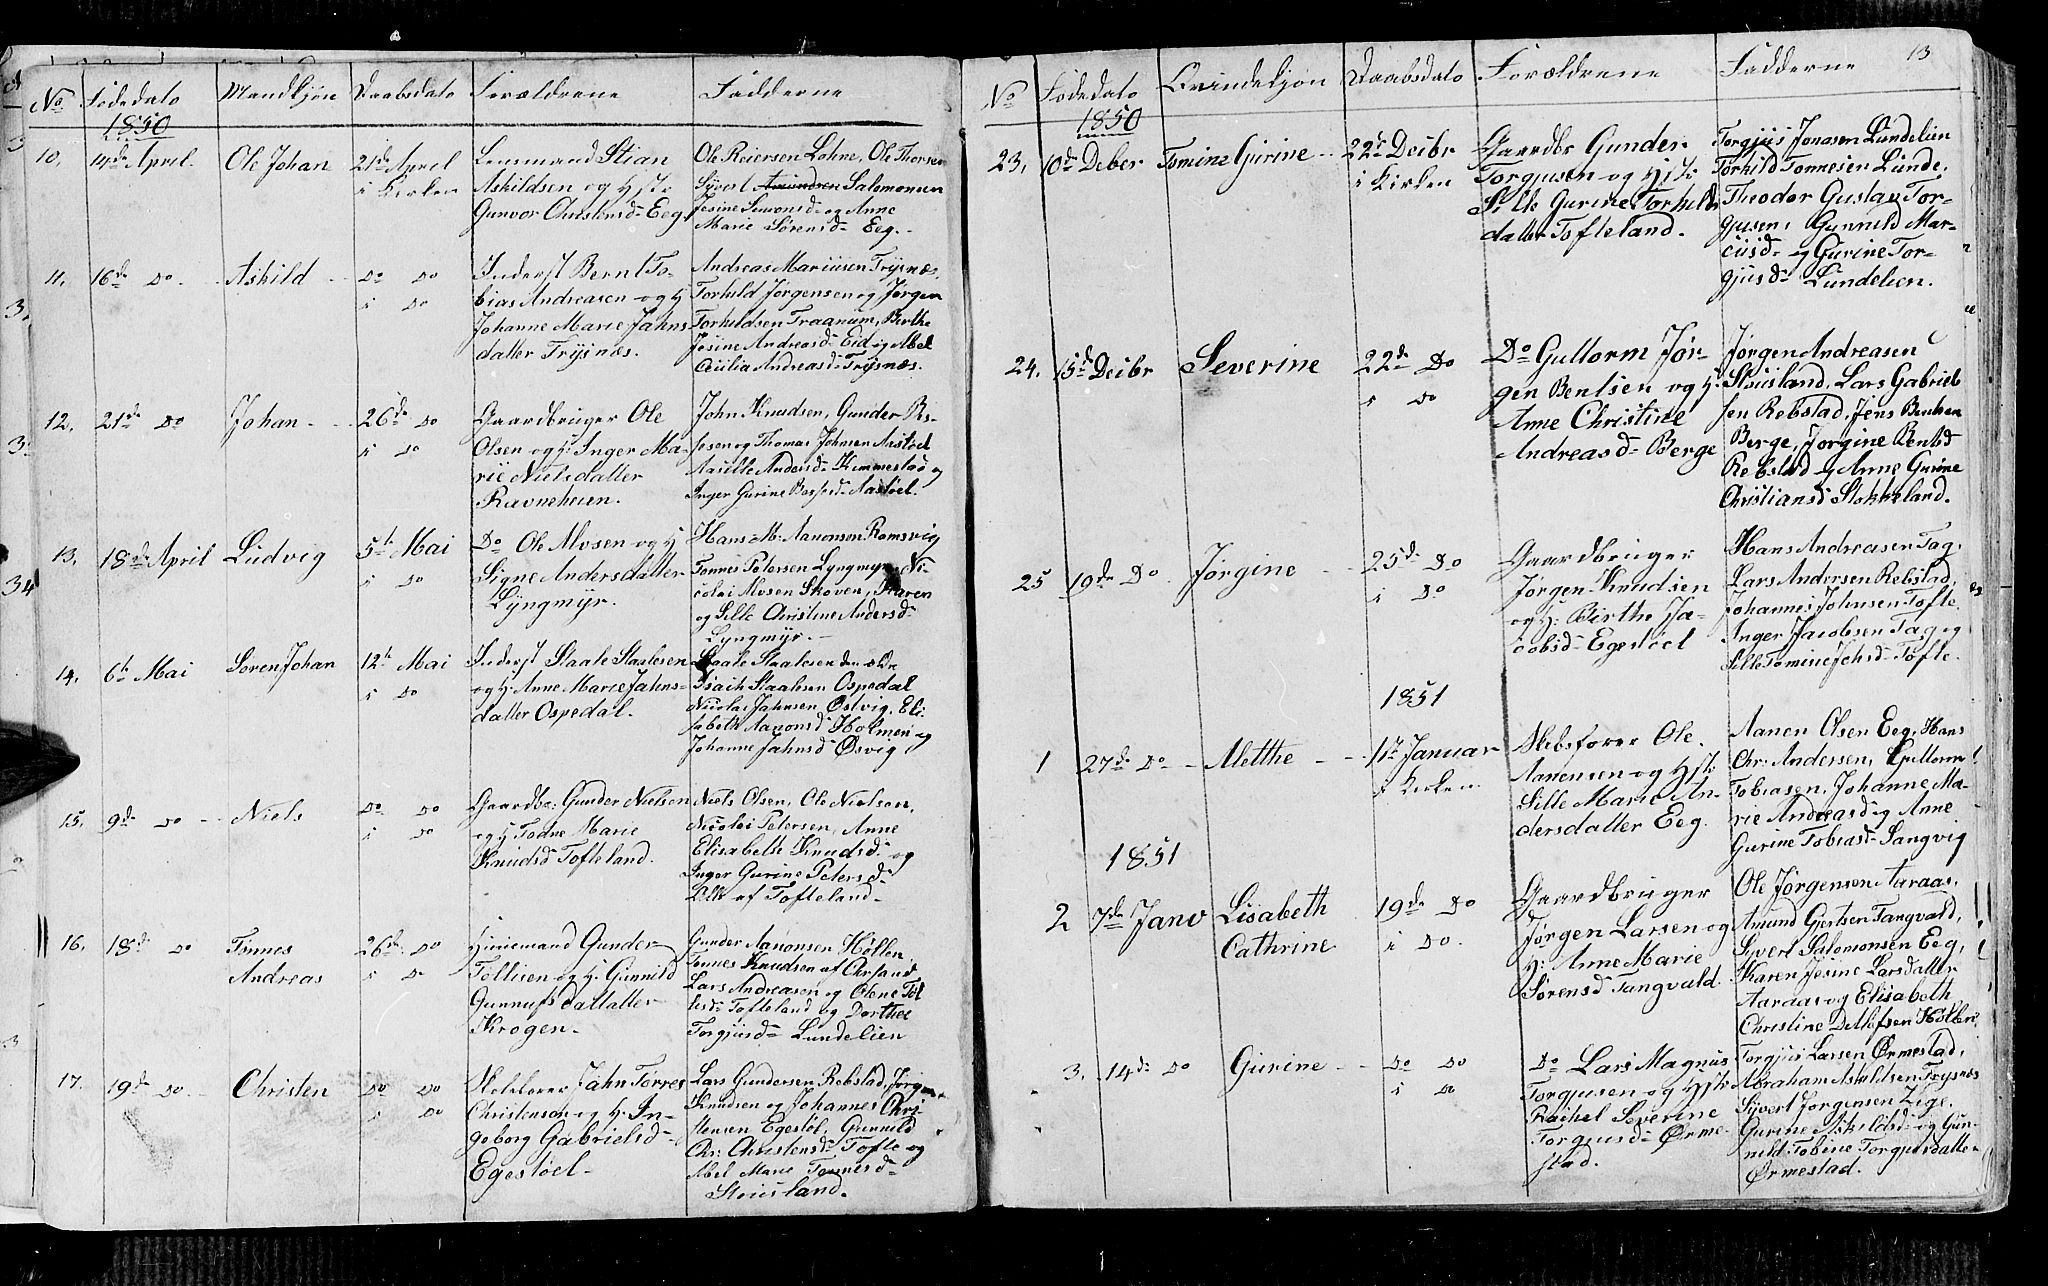 No. Fødedato Mandkjøn Daabsdato Forældrene Fadderne
1850
10. 14de April. Ole Johan 21de April i Kirken
Lensmand Stian
Askildsen og Hstr
Gunvor Christensd. Eeg
Ole Reiersen Lohne, Ole Thorsen
Syvert Amundsen Salomonsen
Jesine Simonsd. og Anne
Marie Sørensd. Eeg.
11. 16de Do. Askild Do Do i Do
Inderst Bernt To-
bias Andreasen og H
Johanne Marie Jahns
datter Trysnæs.
Andreas Mariusen Trysnæs
Torkild Jørgensen og Jørgen
Torkildsen Traanum, Berthe
Jesine Andreasd. Eid og Abel
Cecilia Andreasd. Trysnæs.
12. 21de Do Johan 26de Do i Do
Gaardbruger Ole
Olsen og H: Inger Ma-
rie Nielsdatter
Ravneheien.
John Knudsen, Gunder
og Thomas Johnsen
Andersd. Kimmestad og
Inger Gurine
13. 18de April Ludvig 5te Mai i Do
Do Ole Alvsen og H
Signe Andersdatter
Lyngmyr.
Hans M. Aanonsen Ramsvig
Tønnes Petersen Lyngmyr, Ni-
colai Alvsen Skoven, Karen
og Sille Christine Andersd.
Lyngmyr.
14. 6te Mai Søren Johan 12te Mai i Do
Inderst Staale Staalesen
og H: Anne Marie Jahns-
datter Ospedal.
Staale Staalesen den ældre
Isach Staalesen Ospedal
Nicolai Jahnsen Østvig, Eli-
sabeth Aanonsd. Holmen og
Johanne Jahnsd. Øsvig
15. 9de Do Niels Do Do i Do
Gaardbr: Gunder Nielsen
og H Todne Marie
Knudsd. Tofteland.
Niels Olsen, Ole Nielsen,
Nicolai Petersen, Anne
Elisabeth Knudsd. og
Inger Gurine Petersd.
Alle af Tofteland.
16. 18de Do Tønnes Andreas 26de Do i Do
Gunder
Tollisen og H: Gunnild
Gunnufsdatter
Krogen.
Gunder Aanonsen Høllen,
Tønnes Knudsen af Chrsand
Lars Andreasen og Olene Tol
lisd. Tofteland og Dorthea
Torgjusd. Lundelien
17. 19de Do. Christen Do Do i Do
Skibsfører Jahn Torres
Christensen og H: In-
geborg Gabrielsd.
Egestøel.
Lars Gundersen Rebstad, Jørgen
Knudsen og Johannes Chri-
stensen Egestøl, Gunnild
Chr: Christensd. Tofte og
Abel Marie Tønnesd.
Stousland.
13
No Fødedato Qvindekjøn Daabsdato Forældrene Fadderne
1850
23. 10de Deber Tomine Gurine 22de Deibr i Kirken
Gaardbr Gunder
Torgusen og Hstr
Sille Gurine Torkilds
datter Tofteland.
Torgjus Jonasen Lundelien
Torkild Tønnesen Lunde,
Theodor Gustav Tor-
gjusen, Gunnild Mar-
cusd. og Gurine Tor-
gjusd. Lundelien.
24. 15de Deibr Severine 22de Do i Do
Do Guttorm Jør-
gen Bentsen og H:
Anne Christine
Andreasd. Berge
Jørgen Andreasen
Stousland, Lars Gabriel-
sen Rebstad, Jens Bentsen
Berge, Jørgine Bentsd
Rebstad og Anne Gurine
Christiansd. Stokkeland.
25 19de Do. Jørgine 25de Do i Do
Gaardbruger
Jørgen Knudsen
og H: Birthe Ja-
cobsd. Egestøel
Hans Andreasen Tag,
Lars Andersen Rebstad,
Johannes Johnsen Tofte
Inger Jacobsen Tag og
Sille Tomine Johsd. Tofte.
1851
1 27de Do Mette 1ste Januar i Kirken
Skibsfører Ole
Aanensen og Hstr
Sille Marie An-
dersdatter Eeg.
Aanen Olsen Eeg, Hans
Chr: Andersen, Guttorm
Tobiasen, Johanne Ma-
rie Andreasd. og Anne
Gurine Tobiasd. Langvig
1851
2 7de Janv Lisabeth Cathrine 19de Do i Do.
Gaardbruger
Jørgen Larsen og
H: Anne Marie
Sørensd Tangvald.
Ole Jørgensen Aaraas,
Amund Gjertsen Tangvald,
Syvert Salomonsen Eeg,
Karen Jesine Larsdatter
Aaraas og Elisabeth
Christine Detlefsen Høllen
3. 14de Do Gurine Do Do i Do
Do Lars Magnus
Torgusen og Hstr
Rachel Severine
Torgusd. Ørme-
stad.
Torgjus Larsen Ørmestad,
Abraham Askildsen Trysnæs
Syvert Jørgensen Zige.
Gurine Askildsd. og Gun-
nild Tobine Torgjusdatter
Ørmestad.